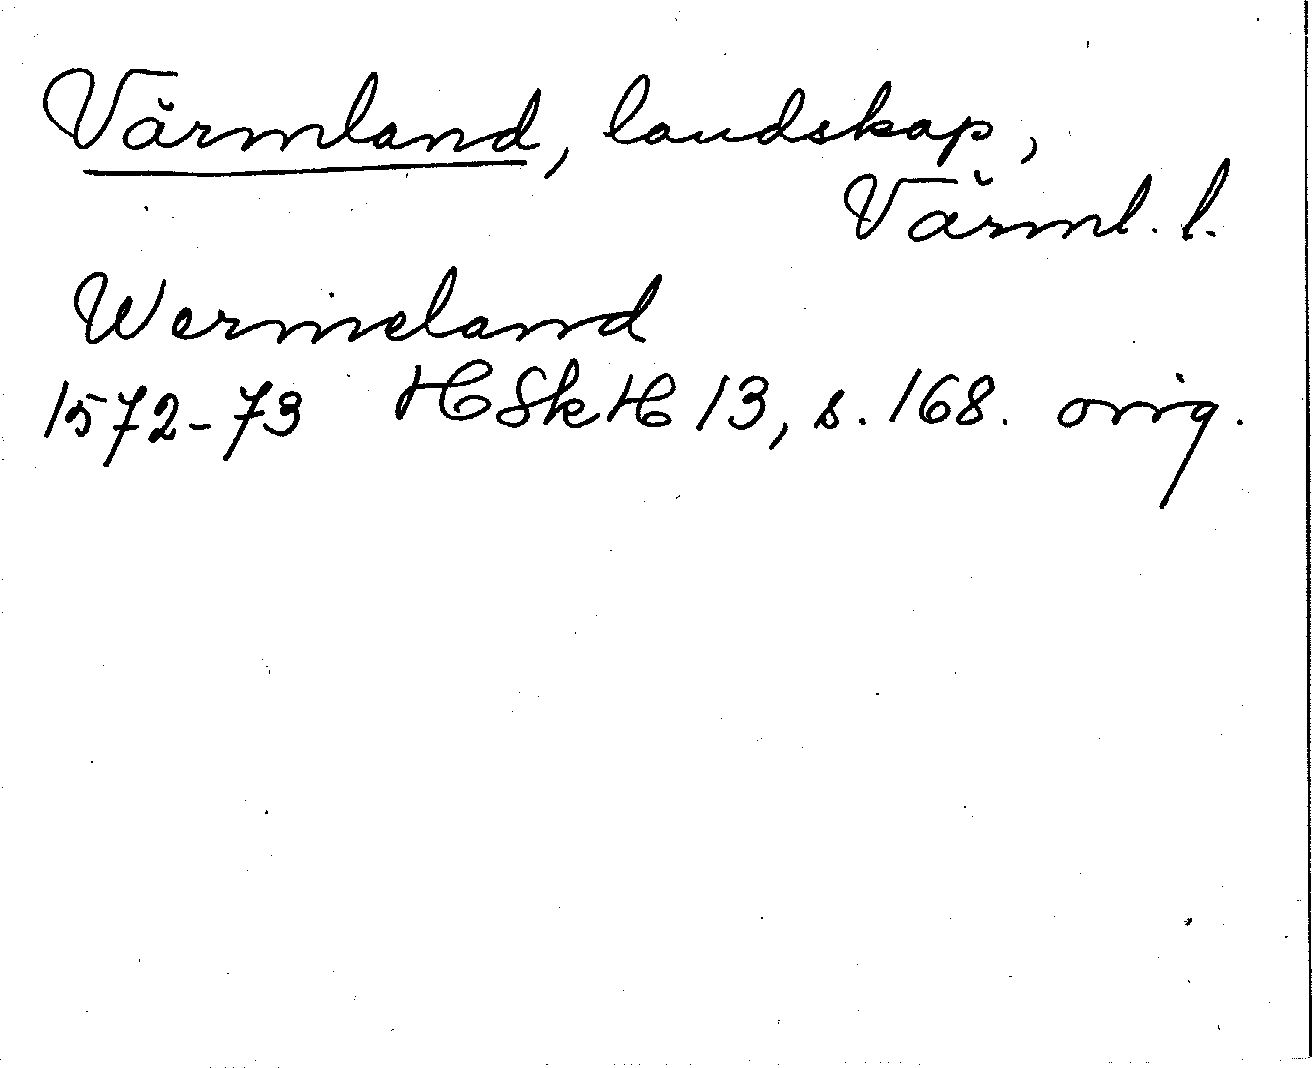 Värmland, landskap,
Värml. l.
Wermeland
1572-73 HSkH 13, s. 168. orig.